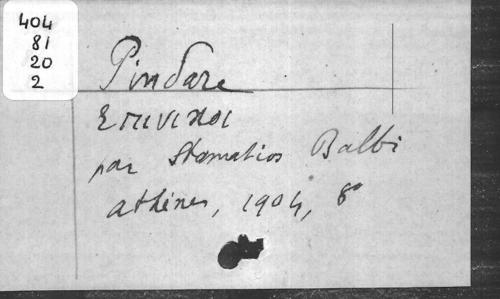 404
81
20
2
Pindare
Επινικοι
par Stamatios Balbi
Athènes, 1904, 8°